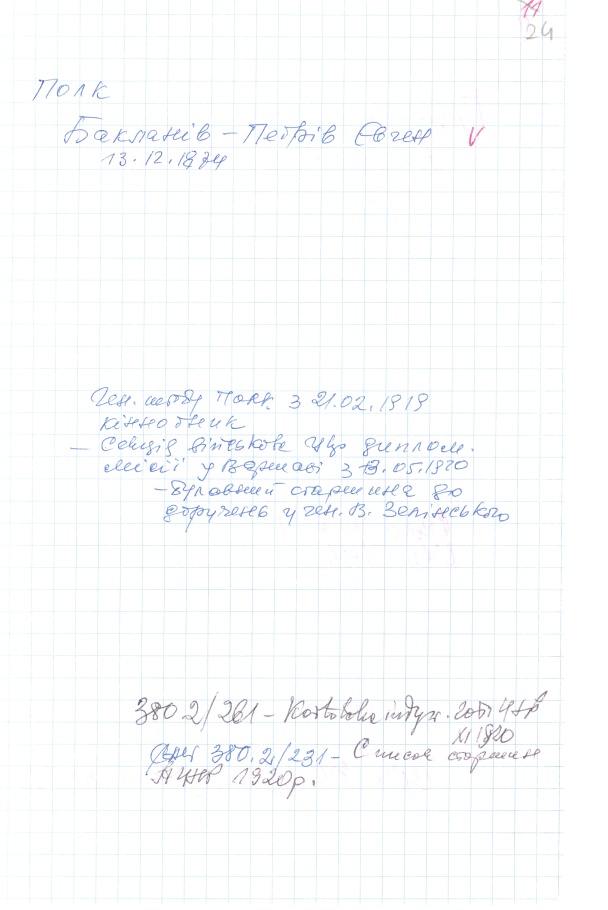 14
24
Полк
Бакланів – Петрів Євген V
13.12.1874
Ген. штабу Полк. з 21.02.1919
кіннотник
– Секція військова УНР диплом.
місії у Варшаві з 13.05.1920
– Булавний старшина до
доручень у ген. В. Зелінського
380 2/261 – Kartoteka
XI 1920
380.2/231 – Список старшин
АУНР 1920р.